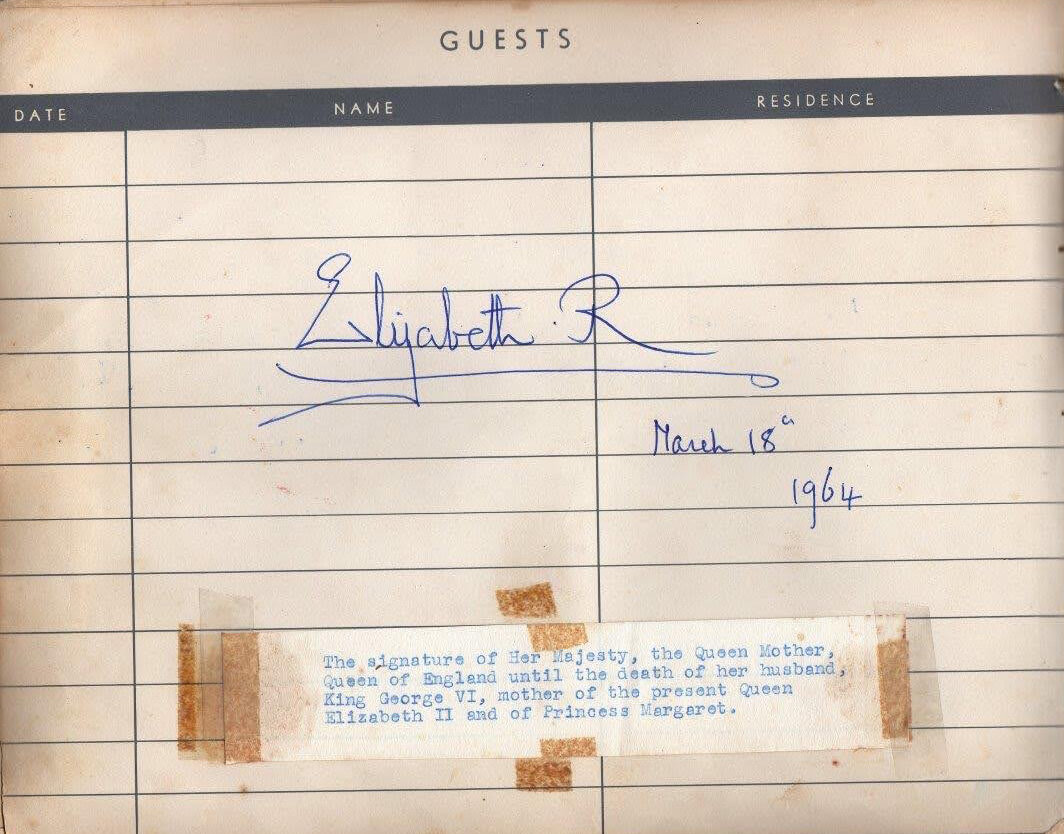 GUESTS
DATE NAME RESIDENCE
Elizabeth R
March 18th
1964
The signature of Her Majesty, the Queen Mother,
Queen of England until the death of her husband,
King George VI, mother of the present Queen
Elizabeth II and of Princess Margaret.